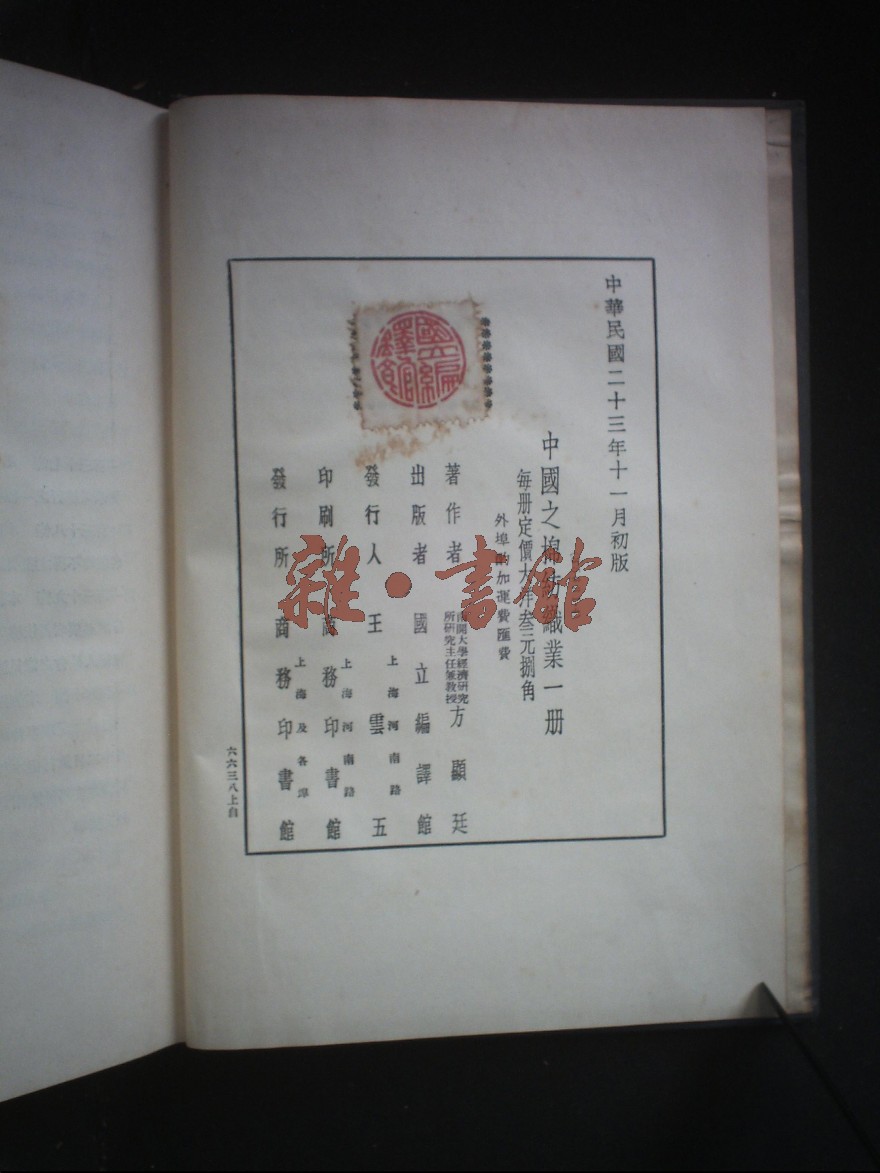 中華民國二十三年十一月初版
中國之棉紡織業一册
每册定價大洋叁元捌角
外埠酌加運費匯費
著作者 南開大學經濟研究所研究主任兼教授 方顯廷
出版者 國立編譯館
發行人 王雲五
上海河南路
印刷所 商務印書館
上海河南路
發行所 商務印書館
上海及各埠
六六三八上自
雜·書館